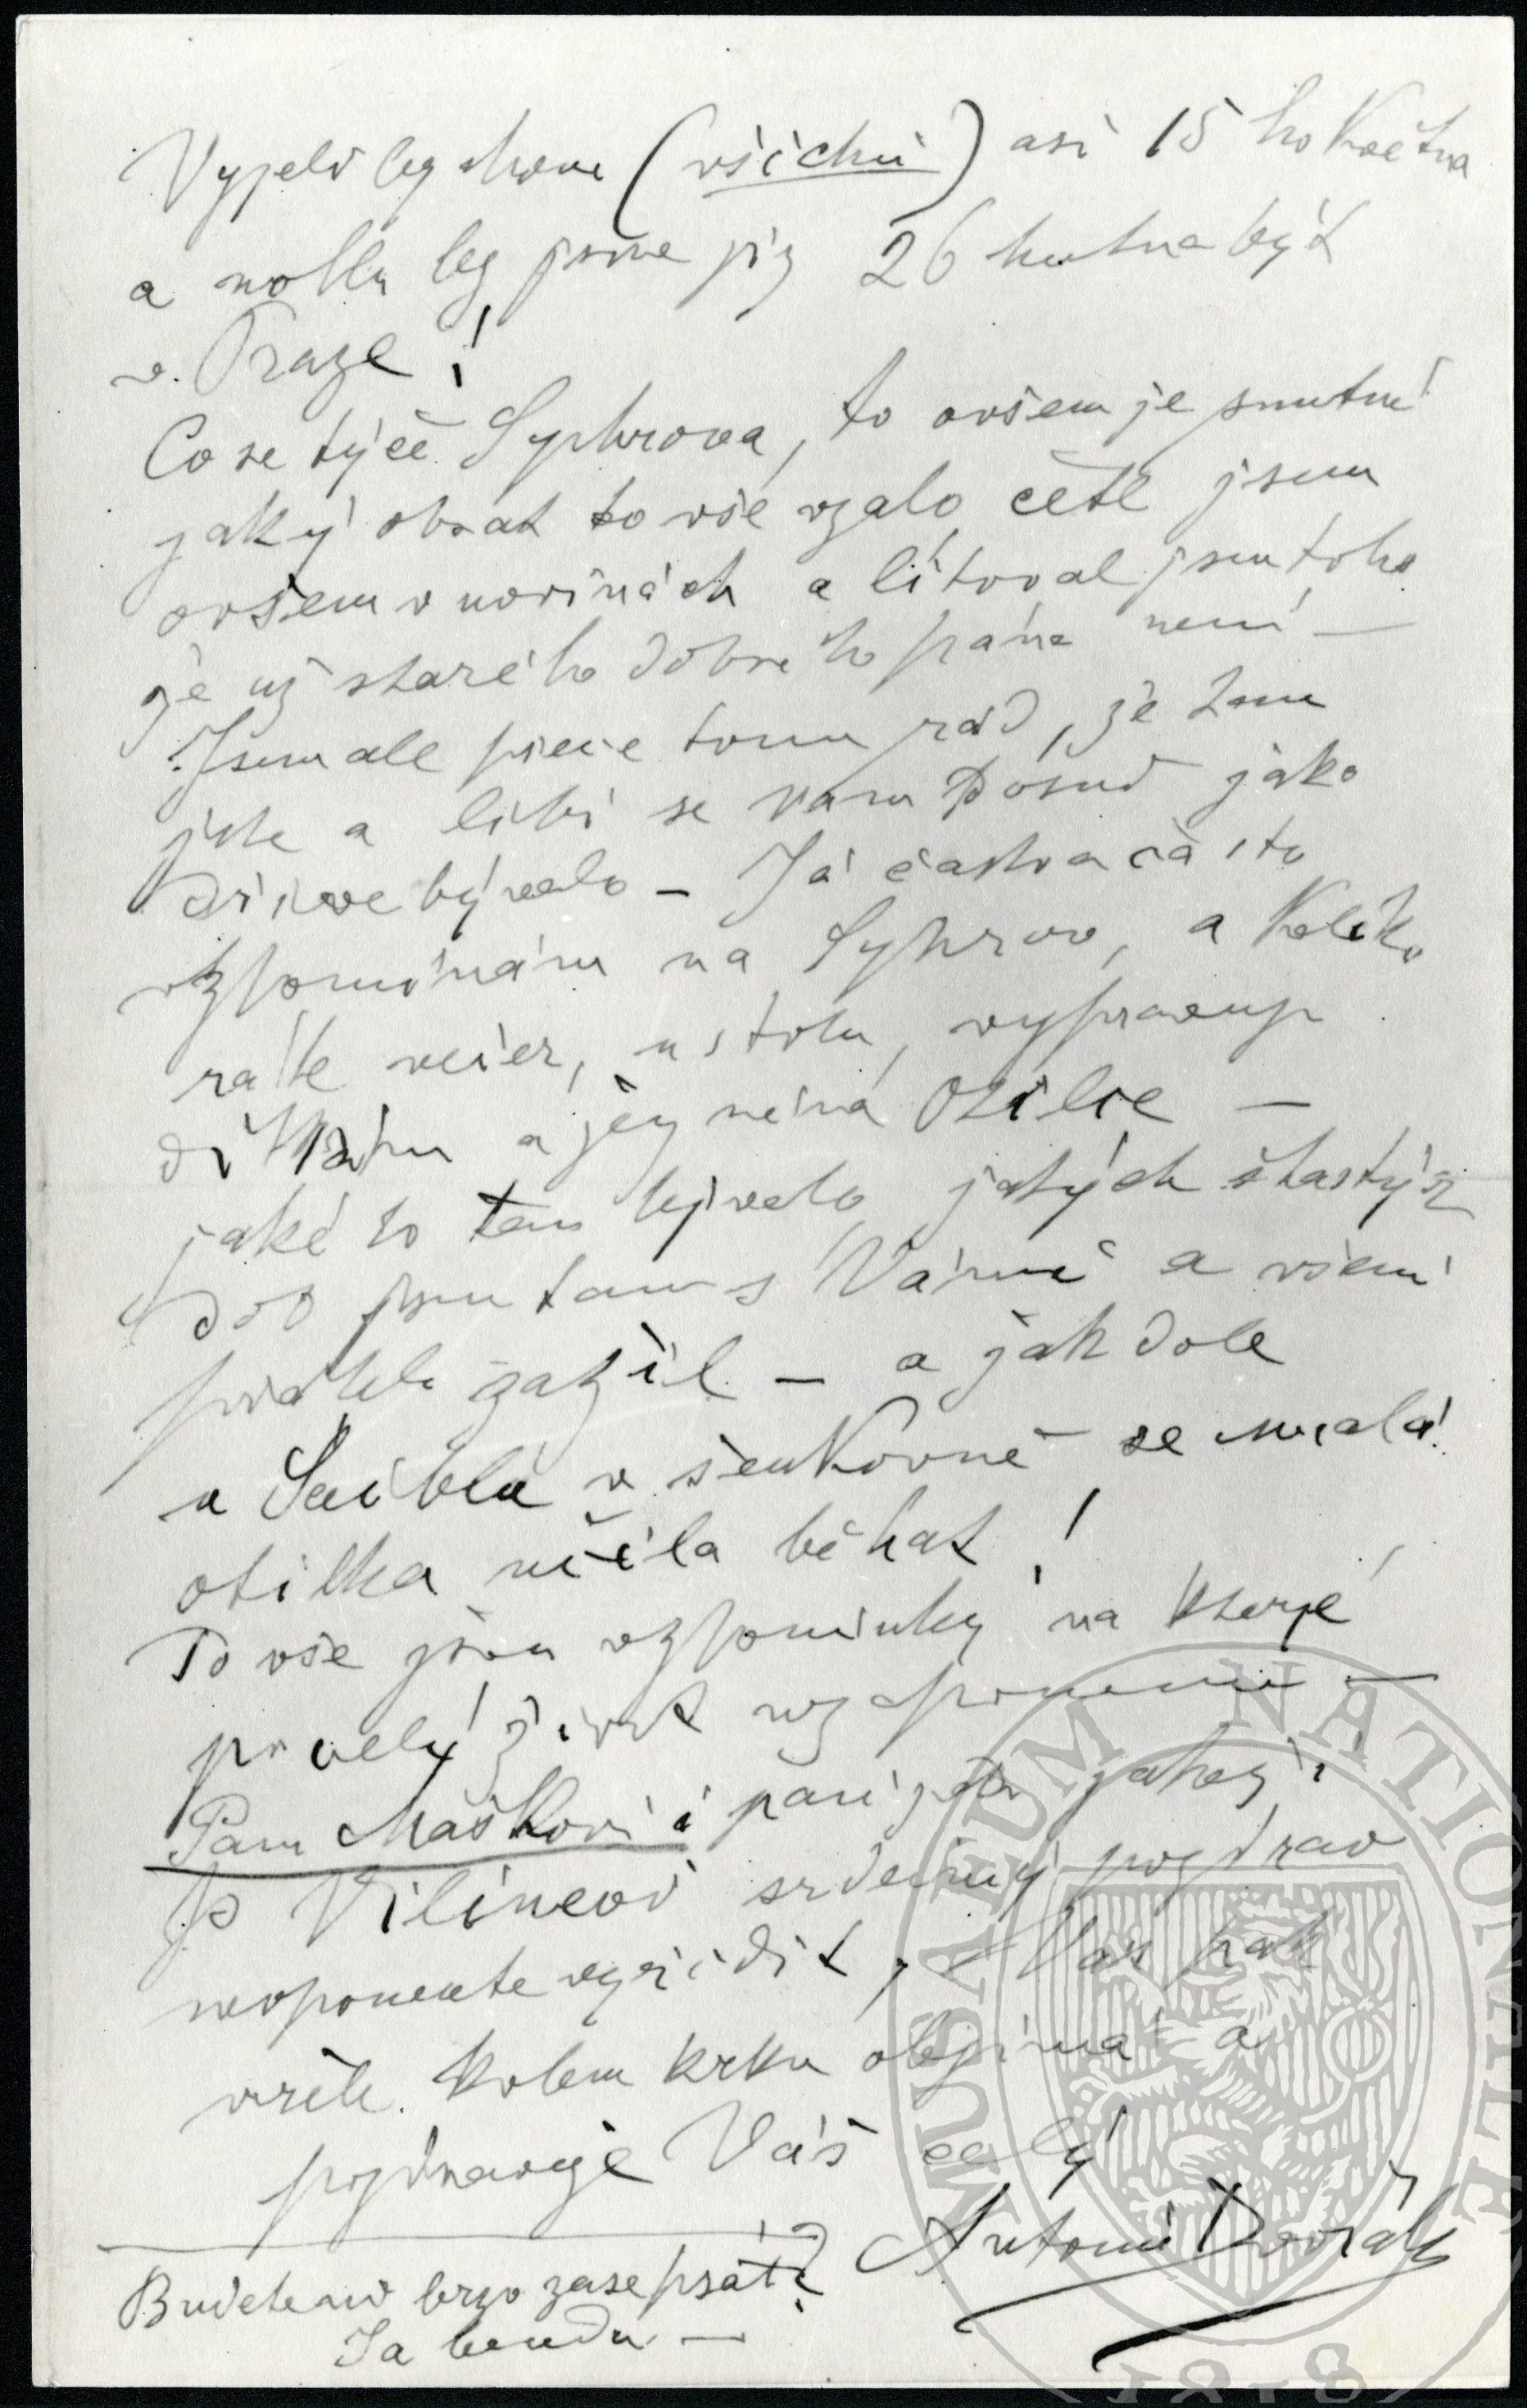 Vyjeli bychom (všichni) asi 15 ho Května
a mohli by jsme již 26 května být
v. Praze!
Co se týče Sychrova, to ovšem je smutné
jaký obrat to vše vzalo četl jsem
ovšem v novinách a litoval jsem toho
že už starého dobrého pána není —
Jsem ale přece tomu rád, že tam
jste a líbí se Vám posud jako
dříve bývalo — Já často a často
vzpomínám na Sychrov, a kolik
ráte večer, u stolu, vypravuji
dítkám a jmenovitě Otilie —
jaké to tam bývalo, jakých šťastných
dob jsem tam s Vámi a všemi
přáteli zažil — a jak dole
u Saibla v šenkovně se malá
Otilka učila běhat!
To vše jsou vzpomínky na které
po celý život nezapomenu —
Panu Maškovi i paní jeho
p Vilímcovi srdečný pozdrav
neopomeňte vyřídit, Vás pak
vřele kolem krku objímá a
pozdravuje Váš celý
Antonín Dvořák
Budete mi brzo zase psát?
Ja budu —
MUSAEUM NATIONALE
1818